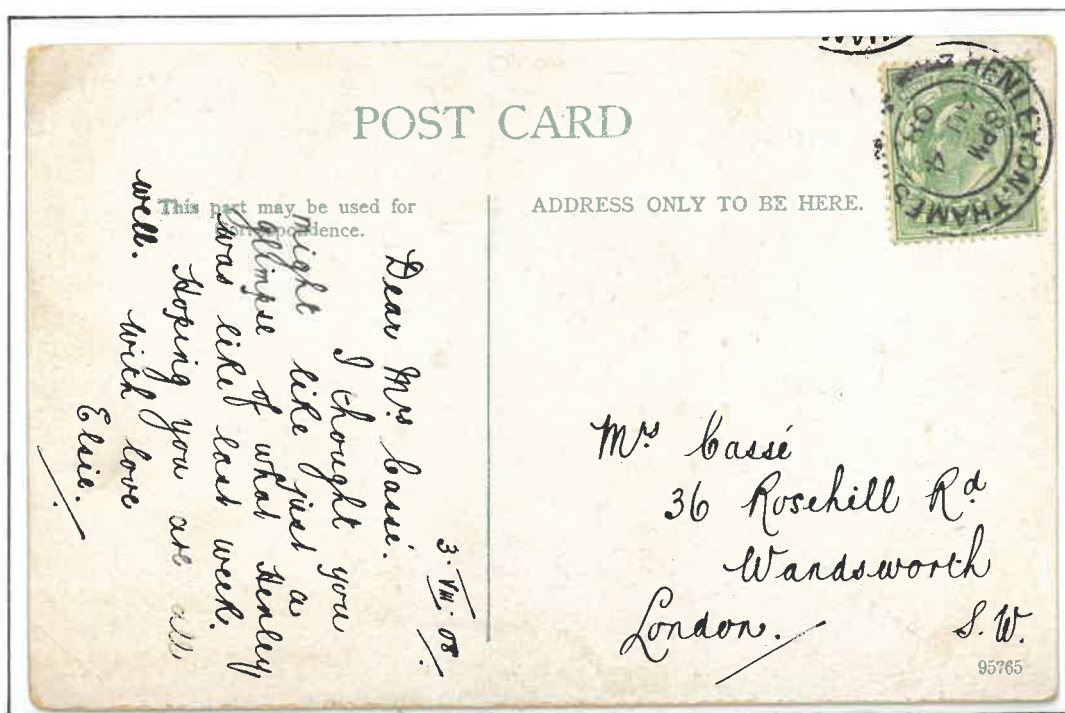 POST CARD
This part may be used for
correspondence.
ADDRESS ONLY TO BE HERE.
HENLEY-ON-THAMES
8 PM
AU 4
08
3. VIII. 08.
Dear Mrs Cassé.
I thought you
might like just a
glimpse of what Henley
was like last week.
Hoping you are all
well. With love
Elsie.
Mrs Cassé
36 Rosehill Rd
Wandsworth
London. S.W.
95765